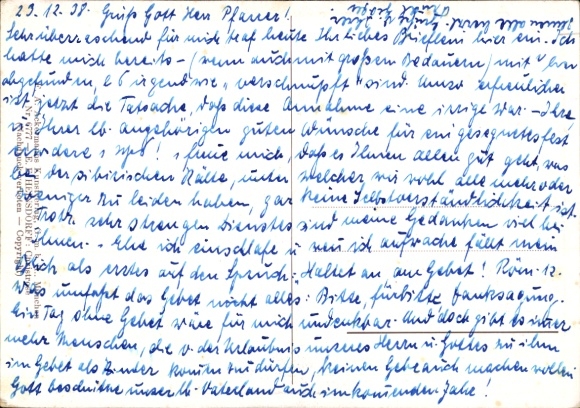 23.12.38. Grüß Gott Herr Pfarrer!
Sehr überraschend für mich traf heute Ihr liebes Brieflein hier ein. Ich
hatte mich bereits - (wenn auch mit großem Bedauern) mit
abgefunden, irgendwie "verschnupft" sind. Umso erfreulicher
ist jetzt die Tatsache, daß diese Annahme eine irrige war - Ihre
u. Ihrer lb. Angehörigen guten Wünsche für ein gesegnetes Fest
mich, daß es Ihnen allen gut geht, was
bei der sibirischen Kälte, unter welcher wir wohl alle mehr oder
weniger zu leiden haben, gar keine Selbstverständlichkeit ist.
Trotz sehr strengen Dienstes sind meine Gedanken viel bei
Ihnen. - Ehe ich einschlafe u. wenn ich aufwache fällt mein
Blick als erstes auf den Spruch: Haltet an am Gebet! Röm. 12.
Was umfaßt das Gebet nicht alles: Bitte, Fürbitte, Danksagung.
Ein Tag ohne Gebet wäre für mich undenkbar. Und doch gibt es immer
mehr Menschen, die v. der Erlaubnis unseres Herrn u. Gottes zu ihm
im Gebet als Kinder kommen zu dürfen, keinen Gebrauch machen wollen.
Gott beschütze unser lb. Vaterland auch im kommenden Jahre!